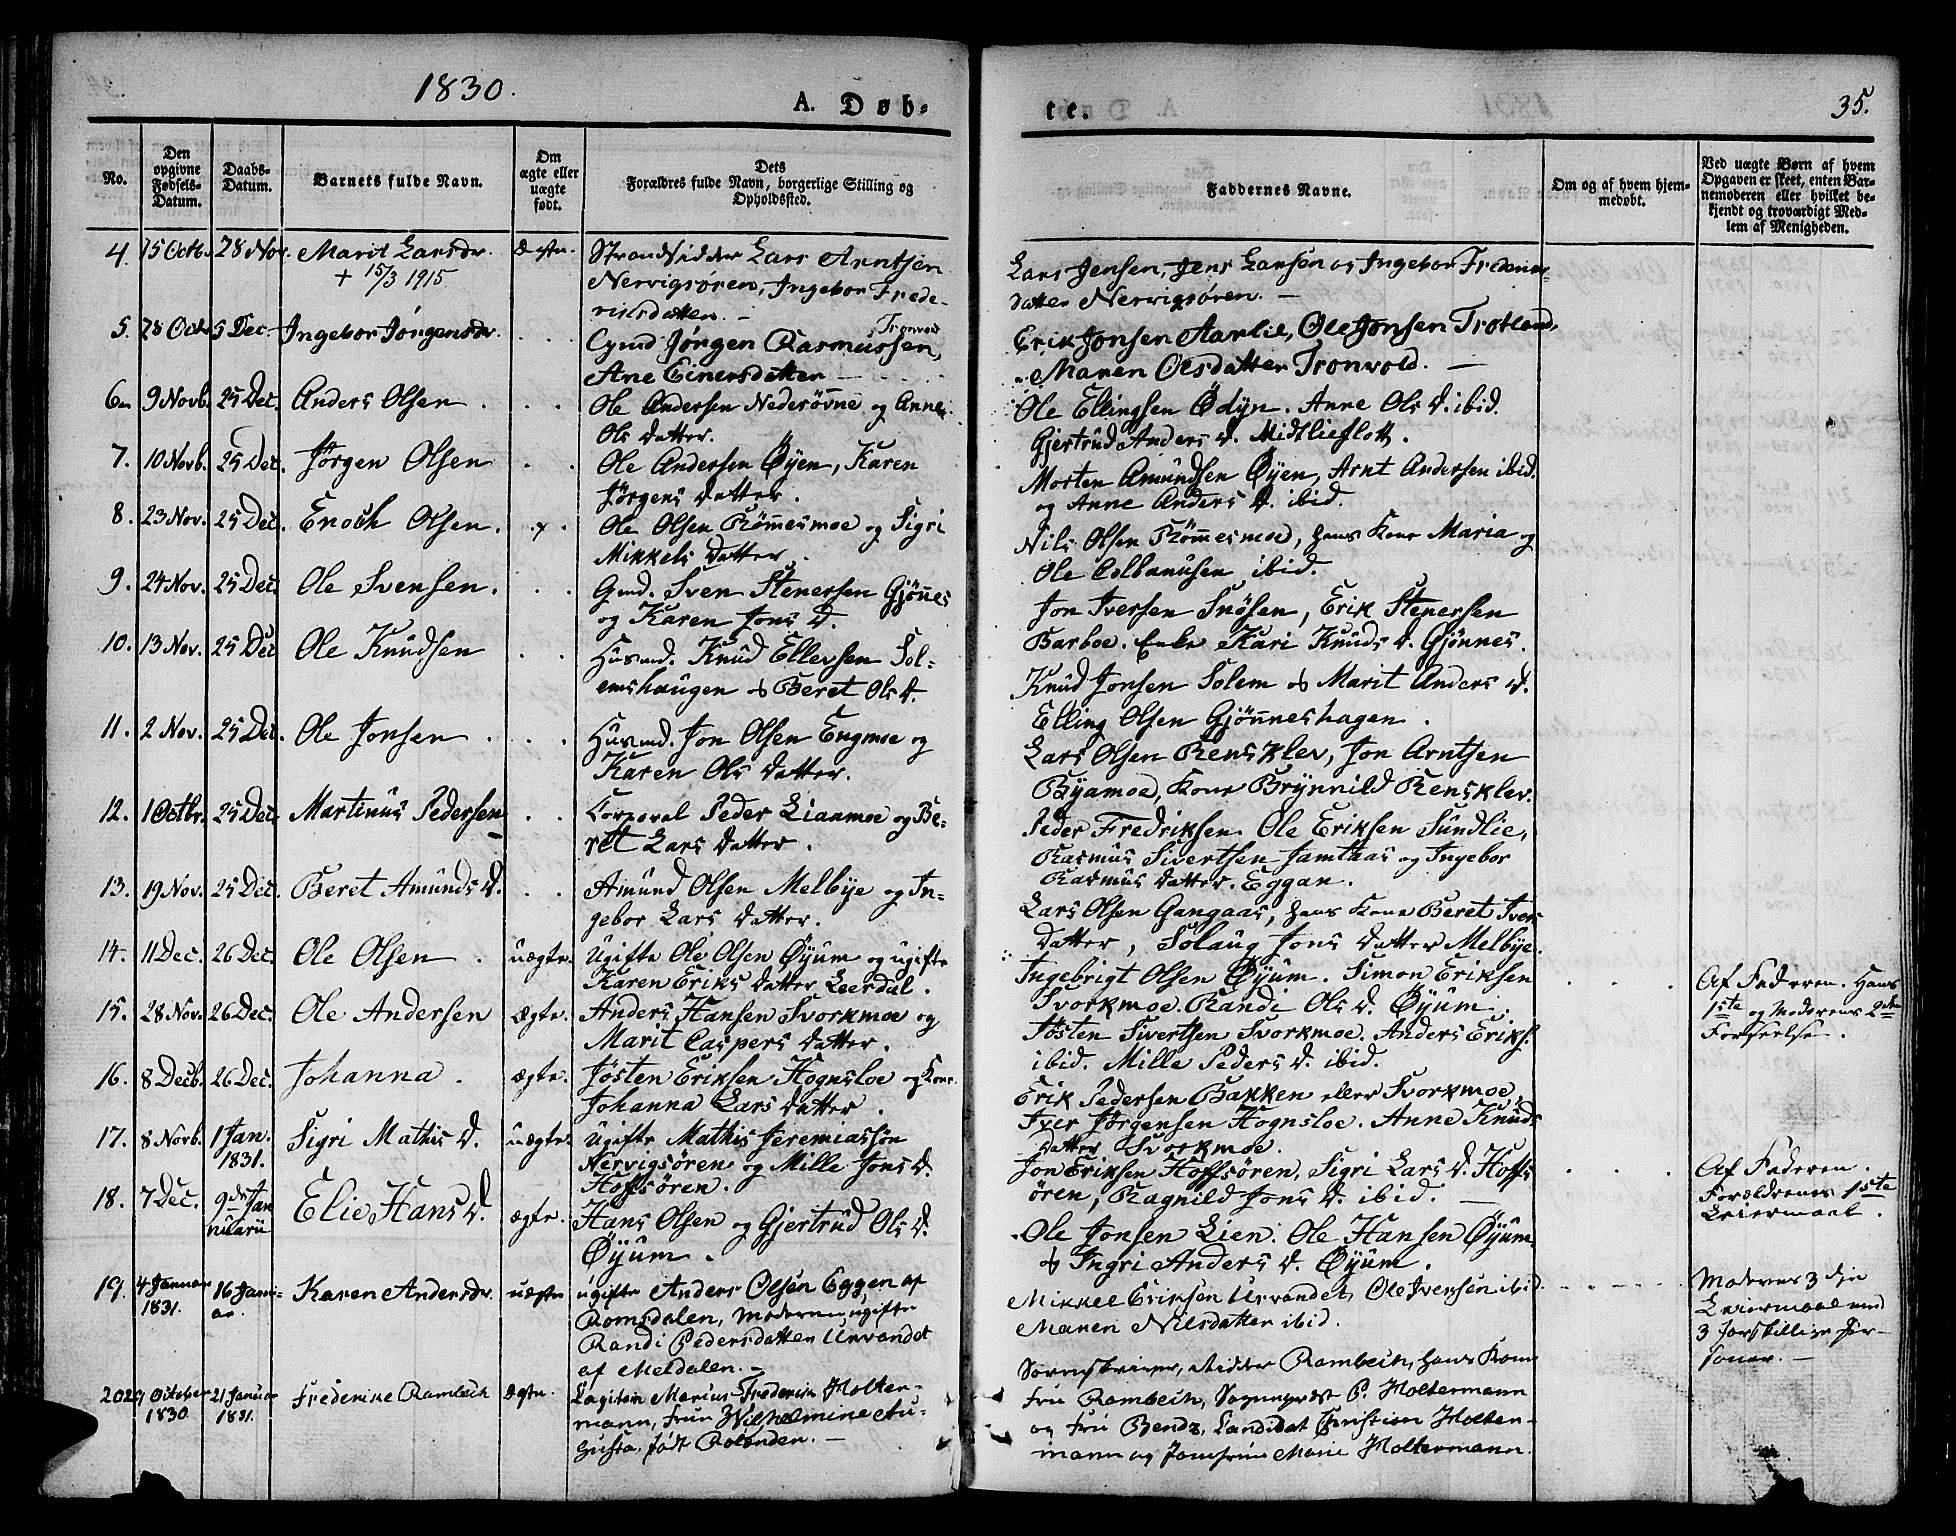 1830.
A. Døb-
te.
35.
No.
Den
opgivne
Fødsels-
Datum.
Daabs-
Datum.
Barnets fulde Navn.
Om
ægte eller
uægte
født.
Dets
Forældres fulde Navn, borgerlige Stilling og
Opholdssted.
Faddernes Navne.
Om og af hvem hjem-
medøbt.
Ved uægte Børn af hvem
Opgaven er skeet, enten Bar-
nemoderen eller hvilket be-
kjendt og troværdigt Med-
lem af Menigheden.
4. 15 Octb. 28 Nov. Marit Larsdr. Ægte.
+ 15/3 1915.
Strandsidder Lars Arntsen
Nervigsøren, Ingebor Frede-
riksdatter. —
Lars Jensen, Jens Larsen og Ingebor Frederiks-
datter Nervigsøren. —
5. 28 Octb. 5 Dec. Ingebor Jørgensdr.
Tronvold
Gmd Jørgen Rasmussen,
Ane Einersdatter —
Erik Jonsen Aarlie, Ole Jonsen Trotland,
Maren Olsdatter Tronvold. —
6. 9 Novb. 25 Dec. Anders Olsen
Ole Andersen Nedersøvne og Anne
Ols Datter.
Ole Ellingsen Ødyn. Anne Ols D. ibid.
Gjertrud Anders D. Midtlieflott.
7. 10 Novb. 25 Dec. Jørgen Olsen
Ole Andersen Øyen, Karen
Jørgens Datter.
Morten Amundsen Øyen, Arnt Andersen ibid.
og Anne Anders D. ibid.
8. 23 Nov. 25 Dec. Enoch Olsen.
Ole Olsen Rømmesmoe og Sigri
Mikkels Datter.
Nils Olsen Rømmesmoe, hans Kone Maria og
Ole Colbanusen ibid.
9. 24 Nov. 25 Dec. Ole Svensen.
Gmd. Sven Stenersen Gjønnes
og Karen Jons D.
Jon Iversen Snøsen, Erik Stenersen
Barboe. Enke Kari Knuds D. Gjønnes.
10. 13 Nov. 25 Dec Ole Knudsen
Husmd. Knud Ellevsen Sol-
emshaugen og Beret Ols D.
Knud Jonsen Solem og Marit Anders D.
Elling Olsen Gjønneshagen.
11. 2 Nov. 25 Dec. Ole Jonsen
Husmd. Jon Olsen Engmoe og
Karen Ols Datter.
Lars Olsen Rensklev, Jon Arntsen
Byamoe, Kone Brynnild Rensklev.
12. 1 Octbr. 25 Dec. Martinus Pedersen
Corporal Peder Lianmoe og Be-
ret Lars Datter.
Peder Fredriksen. Ole Eriksen Sundlie,
Rasmus Sivertsen Jamtaas og Ingebor
Rasmus Datter. Eggan.
13. 19 Nov. 25 Dec. Beret Amunds D.
Amund Olsen Melbye og In-
gebor Lars Datter.
Lars Olsen Gangaas, hans Kone Beret Ivers
Datter, Solaug Jons Datter Melbye.
14. 11 Dec. 26 Dec. Ole Olsen. uægte.
Ugifte Ole Olsen Øyum og ugifte
Karen Eriks Datter Leerdal.
Ingebrigt Olsen Øyum. Simon Eriksen
Svorkmoe. Randi Ols D. Øyum.
Af Faderen. Hans
1ste og Moderens 2den
Forseelse.
15. 28 Nov. 26 Dec. Ole Andersen ægte.
Anders Hansen Svorkmoe og
Marit Caspers Datter.
Jøsten Sivertsen Svorkmoe. Anders Eriks.
ibid. Mille Peders D. ibid.
16. 8 Decb. 26 Dec. Johanna. ægte.
Jøsten Eriksen Hognsloe og Kone
Johanna Lars Datter.
Erik Pedersen Bakken eller Svorkmoe,
Iver Jørgensen Hognsloe. Anne Knuds
Datter Svorkmoe.
17. 8 Novb. 1 Jan.
1831. Sigri Mathis D. uægte.
Ugifte Mathis Jeremiassøn
Nervigsøren og Mille Jons D.
Hoffsøren.
Jon Eriksen Hoffsøren, Sigri Lars D. Hoffs
ören, Ragnild Jons D. ibid. —
Af Faderen.
Forældrenes 1ste
Leiermaal.
18. 7 Dec. 9de Jan
nuarii Elie Hans D. ægte.
Hans Olsen og Gjertrud Ols D.
Øyum.
Ole Jonsen Lien. Ole Hansen Øyum.
og Ingri Anders D. Øyum.
19. 4 Januar
1831. 16 Janu-
ar. Karen Andersdr. uægte
ugifte Anders Olsen Eggen af
Romsdalen, Moderen ugifte
Randi Pedersdatter Urvandet
af Meldalen. —
Mikkel Eriksen Urvandet, Ole Iversen ibid.
Maren Nilsdatter ibid.
Moderens 3die
Leiermaal med
3 forskellige Per-
soner. —
20. 29 October
1830 21 Januar
1831. Frederikke Rambech Ægte.
Capitain Marius Frederik Holter-
mann, Frue Wilhelmine Au-
gusta, født Rolanden. —
Sorenskriver, Ridder Rambech, hans Kone
Frue Rambech, Sogneprest P. Holtermann
og Frue Bendz, Candidat Christian Holter-
mann og Jomfrue Marie Holtermann.